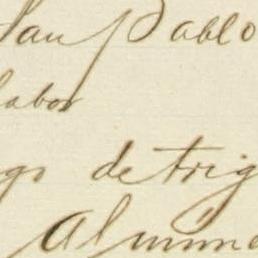 San Pablo
labor
go de trig
Almune